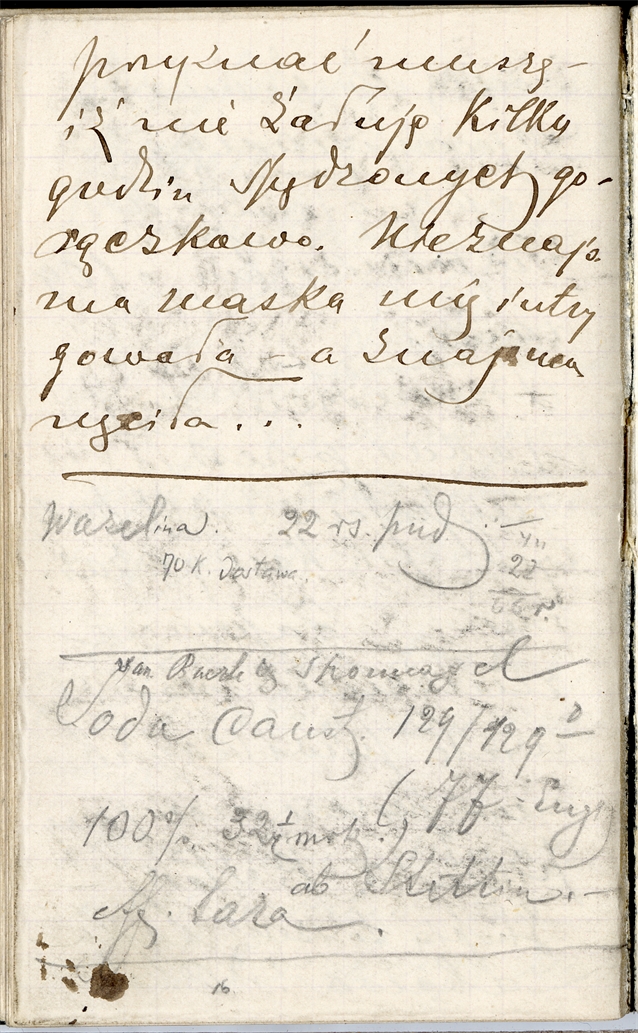 przyznać muszę -
iż nie żałuję kilku
godzin spędzonych go-
rączkowo. Nieznajo-
ma maska mię intry
gowała - a znajoma
nęciła...
Wazelina. 22 rs. pud
70 K. dostawa.
22
66 r.
van Baerle & Sponnagel
Soda Caust. 129/129
(77 Engl
100% 32½ mrk.)
ab Stettin.-
16